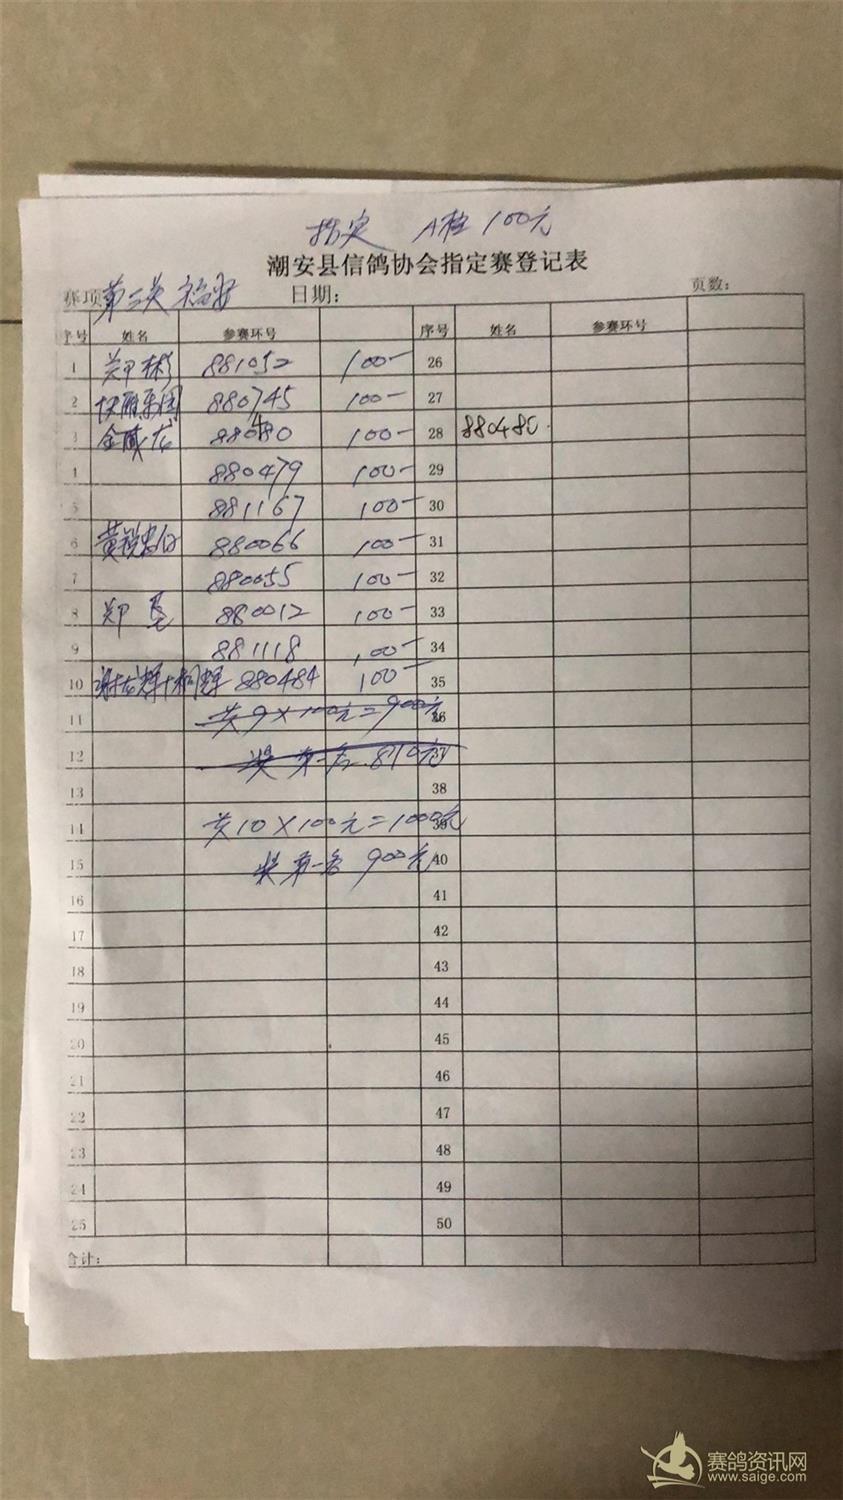 指定 A栏 100元
潮安县信鸽协会指定赛登记表
赛项 第三关 福安 日期: 页数:
序号 姓名 参赛环号 序号 姓名 参赛环号
1 郑彬 881052 100- 26
2 880745 100- 27
3 金威龙 880480 100- 28 880480.
4 880479 100- 29
5 881167 100- 30
6 880066 100- 31
7 880055 100- 32
8 880012 100- 33
9 881118 100- 34
10 880484 100- 35
11 共9×100元=900元 36
12 奖第一名 810元
13 38
14 共10×100元=1000元 39
15 奖第一名 900元 40
16 41
17 42
18 43
19 44
20 45
21 46
22 47
23 48
24 49
25 50
合计:
赛鸽资讯网
www.saige.com